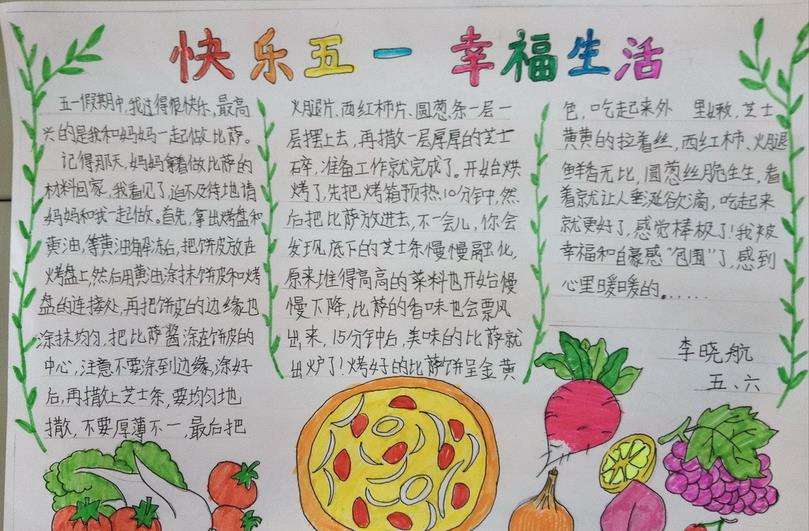 快乐五一 幸福生活
五一假期中,我过得很快乐,最高
兴的是我和妈妈一起做比萨。
记得那天,妈妈拿着做比萨的
材料回家,我看见了,迫不及待地请
妈妈和我一起做。首先,拿出烤盘和
黄油,等黄油解冻后,把饼皮放在
烤盘上,然后用黄油涂抹饼皮和烤
盘的连接处,再把饼皮的边缘也
涂抹均匀。把比萨酱涂在饼皮的
中心,注意不要涂到边缘,涂好
后,再撒上芝士条,要均匀地
撒,不要厚薄不一,最后把
火腿片、西红柿片、圆葱条一层一
层摆上去,再撒一层厚厚的芝士
碎,准备工作就完成了。开始烘
烤了,先把烤箱预热10分钟,然
后把比萨放进去,不一会儿,你会
发现底下的芝士条慢慢融化,
原来堆得高高的菜料也开始慢
慢下降,比萨的香味也会飘
出来,15分钟后,美味的比萨就
出炉了!烤好的比萨饼呈金黄
色,吃起来外 里嫩,芝士
黄黄的拉着丝,西红柿、火腿
鲜香无比,圆葱丝脆生生,看
着就让人垂涎欲滴,吃起来
就更好了,感觉棒极了!我被
幸福和自豪感“包围”了,感到
心里暖暖的......
李晓航
五、六